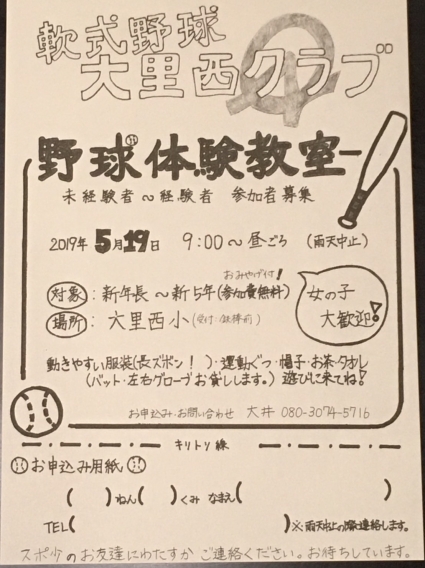 軟式野球
大里西クラブ
野球体験教室
未経験者~経験者 参加者募集
2019年5月19日 9:00~昼ごろ (雨天中止)
おみやげ付!
対象:新年長~新5年(参加費無料)
場所:大里西小(受付・鉄棒前)
女の子
大歓迎!
動きやすい服装(長ズボン!)・運動ぐつ・帽子・お茶・タオル
(バット・左右グローブお貸しします。)遊びに来てね!
お申込み・お問い合わせ 大井 080-3074-5716
キリトリ線
お申込み用紙
( )ねん( )くみ なまえ( )
TEL( )※雨天中止の際連絡します。
スポ少のお友達にわたすか ご連絡ください。お待ちしています。